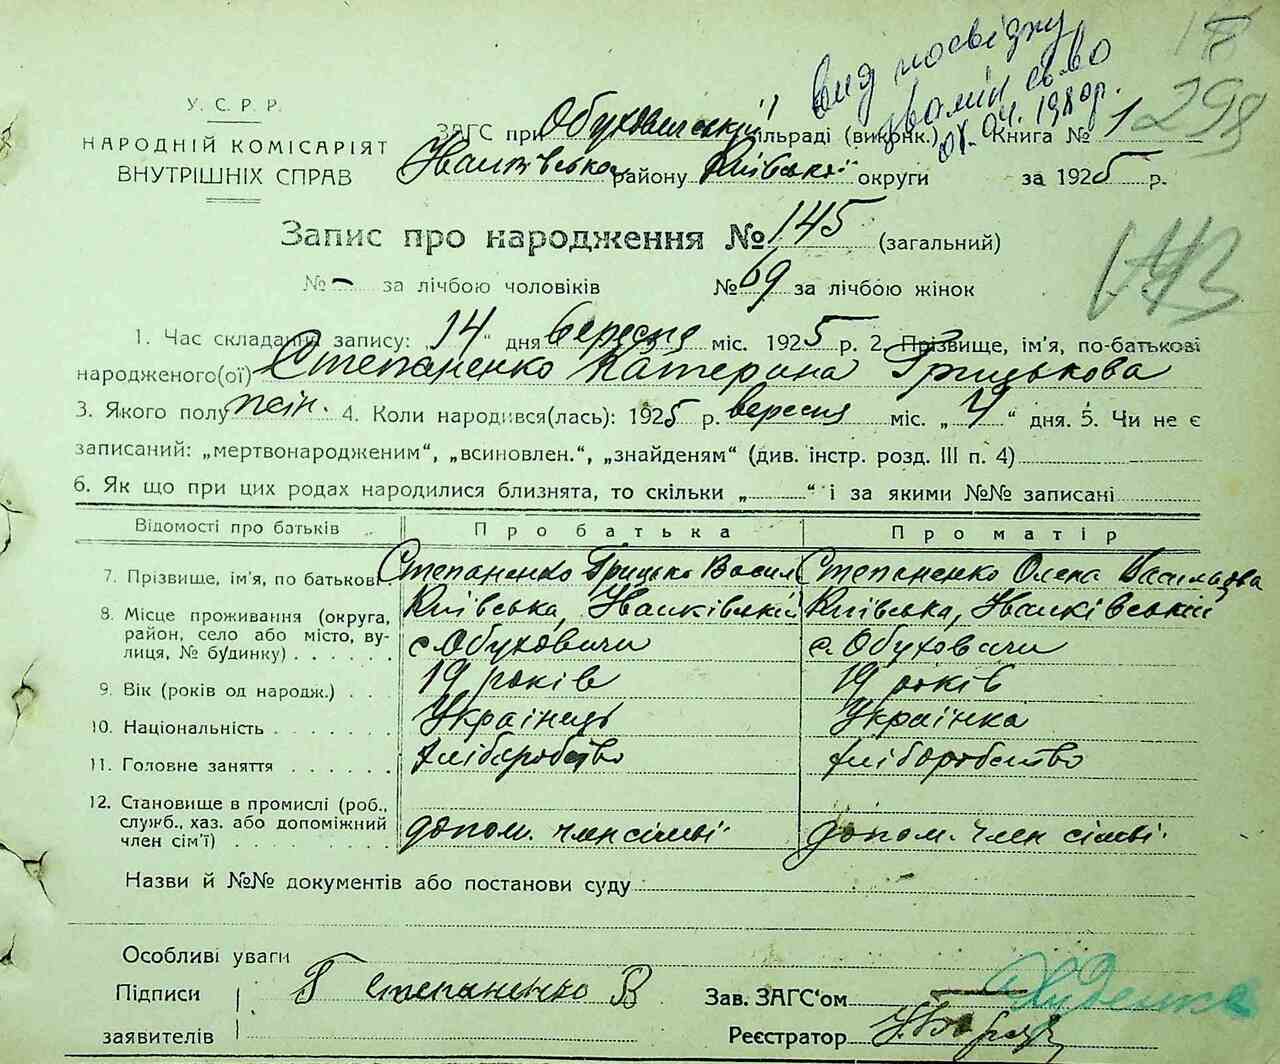 18
298
вид посвідку
01.04.1980р.
У. С. Р. Р.
НАРОДНІЙ КОМІСАРІЯТ
ВНУТРІШНІХ СПРАВ
ЗАГС при Обуховицькій сільраді (виконк.) Книга № 1
Іванківського району Київської округи за 1925 р.
Запис про народження № 145 (загальний)
№ – за лічбою чоловіків № 69 за лічбою жінок
1. Час складання запису: „14“ дня вересня міс. 1925 р. 2. Прізвище, ім'я, по-батькові
народженого(ої) Степаненко Катерина Грицькова
3. Якого полу жін. 4. Коли народився(лась): 1925 р. вересня міс. „4“ дня. 5. Чи не є
записаний: „мертвонародженим“, „всиновлен.“, „знайденям“ (див. інстр. розд. III п. 4)
6. Як що при цих родах народилися близнята, то скільки „ “ і за якими №№ записані
Відомості про батьків Про батька Про матір
7. Прізвище, ім'я, по батькові Степаненко Грицько Васил Степаненко Олена Васильова
8. Місце проживання (округа, Київська, Іванківський Київська, Іванківський
район, село або місто, ву-
лиця, № будинку) с. Обуховичи с. Обуховичи
9. Вік (років од народж.) 19 років 19 років
10. Національність Українець Українка
11. Головне заняття хліборобство хліборобство
12. Становище в промислі (роб.,
служб., хаз. або допоміжний допом. член сімьі допом. член сімьі
член сім'ї)
Назви й №№ документів або постанови суду
Особливі уваги
Підписи Г Степаненко В Зав. ЗАГС'ом Худенко
заявителів Реєстратор